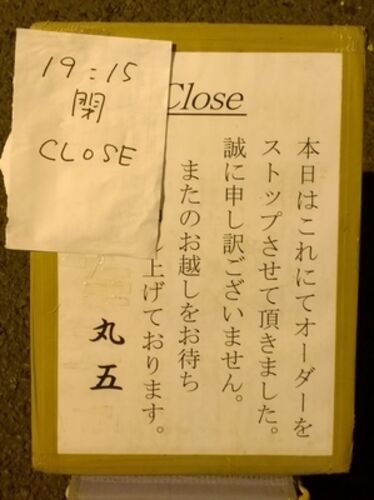 19:15
閉
CLOSE
Close
本日はこれにてオーダーを
ストップさせて頂きました。
誠に申し訳ございません。
またのお越しをお待ち
し上げております。
丸五